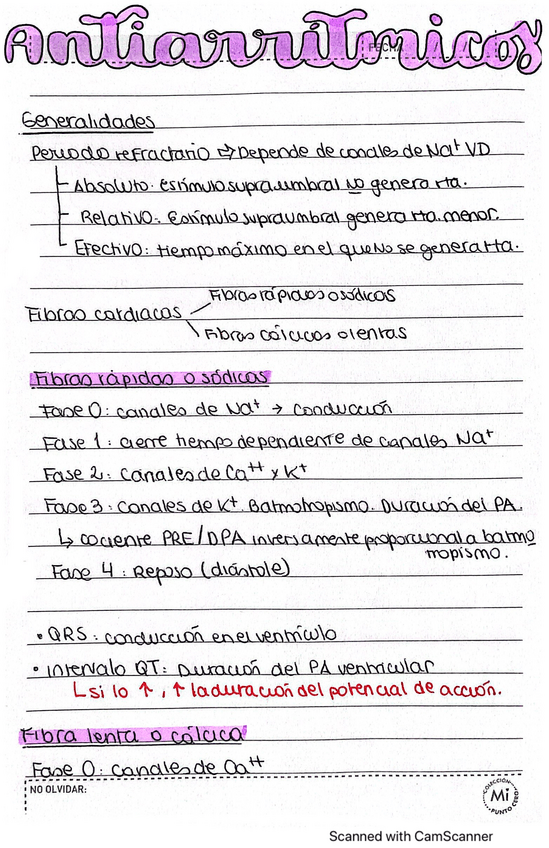 Antiarrítmicos
FECHA
Generalidades
Periodo refractario ⇒ Depende de canales de Na+ VD
Absoluto: Estímulo supraumbral no genera rta.
Relativo: Estímulo supraumbral genera rta menor.
Efectivo: tiempo máximo en el que No se genera rta.
Fibras rápidas o sódicas
Fibras cardiacas
Fibras cálcicas o lentas
Fibras rápidas o sódicas
Fase 0: canales de Na+ → conducción
Fase 1: cierre tiempo dependiente de canales Na+
Fase 2: Canales de Ca++ y K+
Fase 3: Canales de K+. Batmotropismo. Duración del PA.
↳ cociente PRE/DPA inversamente proporcional a batmo
tropismo.
Fase 4: Reposo (diástole)
• QRS: conducción en el ventrículo
• intervalo QT: Duración del PA ventricular
↳ si lo ↑, ↑ la duración del potencial de acción.
Fibra lenta o cálcica
Fase 0: canales de Ca++
NO OLVIDAR:
COLECCIÓN
Mi
PUNTO CERO
Scanned with CamScanner